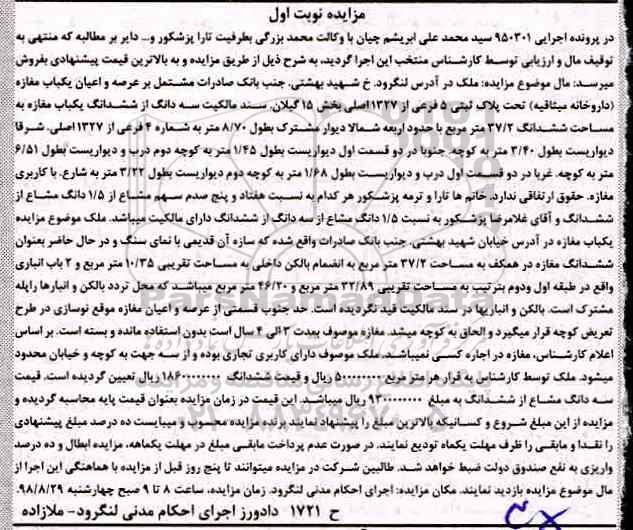 مزایده نوبت اول
در پرونده اجرایی ۹۵۰۳۰۱ سید محمد علی ابریشم چیان با وکالت محمد بزرگی بطرفیت تارا پزشکور و... دایر بر مطالبه که منتهی به
توقیف مال و ارزیابی توسط کارشناس منتخب این اجرا گردید، به شرح ذیل از طریق مزایده و به بالاترین قیمت پیشنهادی بفروش
میرسد: مال موضوع مزایده: ملک در آدرس لنگرود. خ شهید بهشتی. جنب بانک صادرات مشتمل بر عرصه و اعیان یکباب مغازه
(داروخانه میثاقیه) تحت پلاک ثبتی ۵ فرعی از ۱۳۲۷ اصلی بخش ۱۵ گیلان. سند مالکیت سه دانگ از ششدانگ یکباب مغازه به
مساحت ششدانگ ۳۷/۲ متر مربع با حدود اربعه شمالا دیوار مشترک بطول ۸/۷۰ متر به شماره ۴ فرعی از ۱۳۲۷ اصلی. شرقا
دیواریست بطول ۳/۴۰ متر به کوچه. جنوبا در دو قسمت اول دیواریست بطول ۱/۴۵ متر به کوچه دوم درب و دیواریست بطول ۶/۵۱
متر به کوچه. غربا در دو قسمت اول درب و دیواریست بطول ۱/۶۸ متر به کوچه دوم دیواریست بطول ۳/۲۲ متر به شارع. با کاربری
مغازه. حقوق ارتفاقی ندارد. خانم ها تارا و ترمه پزشکور هر کدام به نسبت هفتاد و پنج صدم سهم مشاع از ۱/۵ دانگ مشاع از
ششدانگ و آقای غلامرضا پزشکور به نسبت ۱/۵ دانگ مشاع از سه دانگ از ششدانگ دارای مالکیت میباشد. ملک موضوع مزایده
یکباب مغازه در آدرس خیابان شهید بهشتی. جنب بانک صادرات واقع شده که سازه آن قدیمی با نمای سنگ و در حال حاضر بعنوان
ششدانگ مغازه در همکف به مساحت ۳۷/۲ متر مربع به انضمام بالکن داخلی به مساحت تقریبی ۱۰/۳۵ متر مربع و ۲ باب انباری
واقع در طبقه اول ودوم بترتیب به مساحت تقریبی ۳۲/۸۹ متر مربع و ۴۶/۲۰ متر مربع میباشد که محل تردد بالکن و انبارها راپله
مشترک است. بالکن و انباریها در سند مالکیت قید نگردیده است. حد جنوب قسمتی از عرصه و اعیان مغازه موقع نوسازی در طرح
تعریض کوچه قرار میگیرد و الحاق به کوچه میشد. مغازه موصوف بمدت ۳ الی ۴ سال است بدون استفاده مانده و بسته است. بر اساس
اعلام کارشناس، مغازه در اجاره کسی نمیباشد. ملک موصوف دارای کاربری تجاری بوده و از سه جهت به کوچه و خیابان محدود
میشود. ملک توسط کارشناس به قرار هر متر مربع ریال و قیمت ششدانگ ریال تعیین گردیده است. قیمت
سه دانگ مشاع از ششدانگ به مبلغ ریال میباشد. این قیمت در زمان مزایده بعنوان قیمت پایه محاسبه گردیده و
مزایده از این مبلغ شروع و کسانیکه بالاترین مبلغ را پیشنهاد نمایند برنده مزایده محسوب و میبایست ده درصد مبلغ پیشنهادی
را نقدا و مابقی را ظرف مهلت یکماه تودیع نمایند. در صورت عدم پرداخت مابقی مبلغ در مهلت یکماهه، مزایده ابطال و ده درصد
واریزی به نفع صندوق دولت ضبط خواهد شد. طالبین شرکت در مزایده میتوانند تا پنج روز قبل از مزایده با هماهنگی این اجرا از
مال موضوع مزایده بازدید نمایند. مکان مزایده: اجرای احکام مدنی لنگرود. زمان مزایده، ساعت ۸ تا ۹ صبح چهارشنبه ۹۸/۸/۲۹.
ح ۱۷۲۱ دادورز اجرای احکام مدنی لنگرود- ملازاده
ParsNamadData